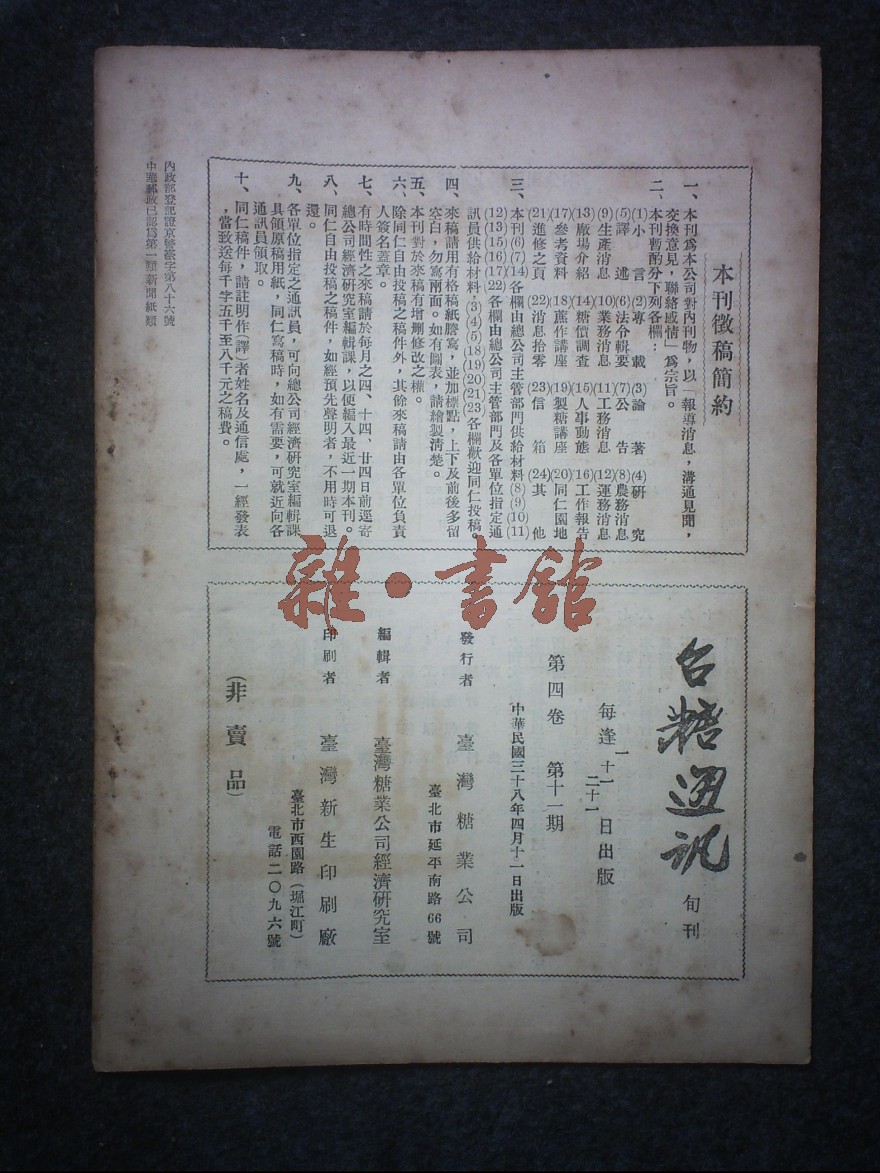 本刊徵稿簡約
一、本刊為本公司對內刊物，以「報導消息，溝通見聞，
交換意見，聯絡感情」為宗旨。
二、本刊暫酌分下列各欄：
(1)小言 (2)專載 (3)論著 (4)研究
(5)譯述 (6)法令輯要 (7)公告 (8)農務消息
(9)生產消息 (10)業務消息 (11)工務消息 (12)運務消息
(13)廠場介紹 (14)糖價調查 (15)人事動態 (16)工作報告
(17)參考資料 (18)蔗作講座 (19)製糖講座 (20)同仁園地
(21)進修之頁 (22)消息拾零 (23)信箱 (24)其他
三、本刊(6)(7)(14)各欄由總公司主管部門供給材料(8)(9)(10)(11)
(12)(13)(15)(16)(17)(22)各欄由總公司主管部門及各單位指定通
訊員供給材料，(3)(4)(5)(18)(19)(20)(21)(23)各欄歡迎同仁投稿。
四、來稿請用有格稿紙謄寫，並加標點，上下及前後多留
空白，勿寫兩面。如有圖表，請繪製清楚。
五、本刊對於來稿有增刪修改之權。
六、除同仁自由投稿之稿件外，其餘來稿請由各單位負責
人簽名蓋章。
七、有時間性之來稿請於每月之四、十四、廿四日前逕寄
總公司經濟研究室編輯課，以便編入最近一期本刊。
八、同仁自由投稿之稿件，如經預先聲明者，不用時可退
還。
九、各單位指定之通訊員，可向總公司經濟研究室編輯課
具領原稿用紙，同仁寫稿時，如有需要，可就近向各
通訊員領取。
十、同仁稿件，請註明作（譯）者姓名及通信處，一經發表
，當致送每千字五千至八千元之稿費。
內政部登記證京警臺字第八十六號
中華郵政已認為第一類新聞紙類
雜·書館
台糖通訊 旬刊
每逢一 十一 二十一日出版
第四卷 第十一期
中華民國三十八年四月十一日出版
發行者 臺灣糖業公司
臺北市延平南路66號
編輯者 臺灣糖業公司經濟研究室
印刷者 臺灣新生印刷廠
臺北市西園路（堀江町）
電話二〇九六號
（非賣品）